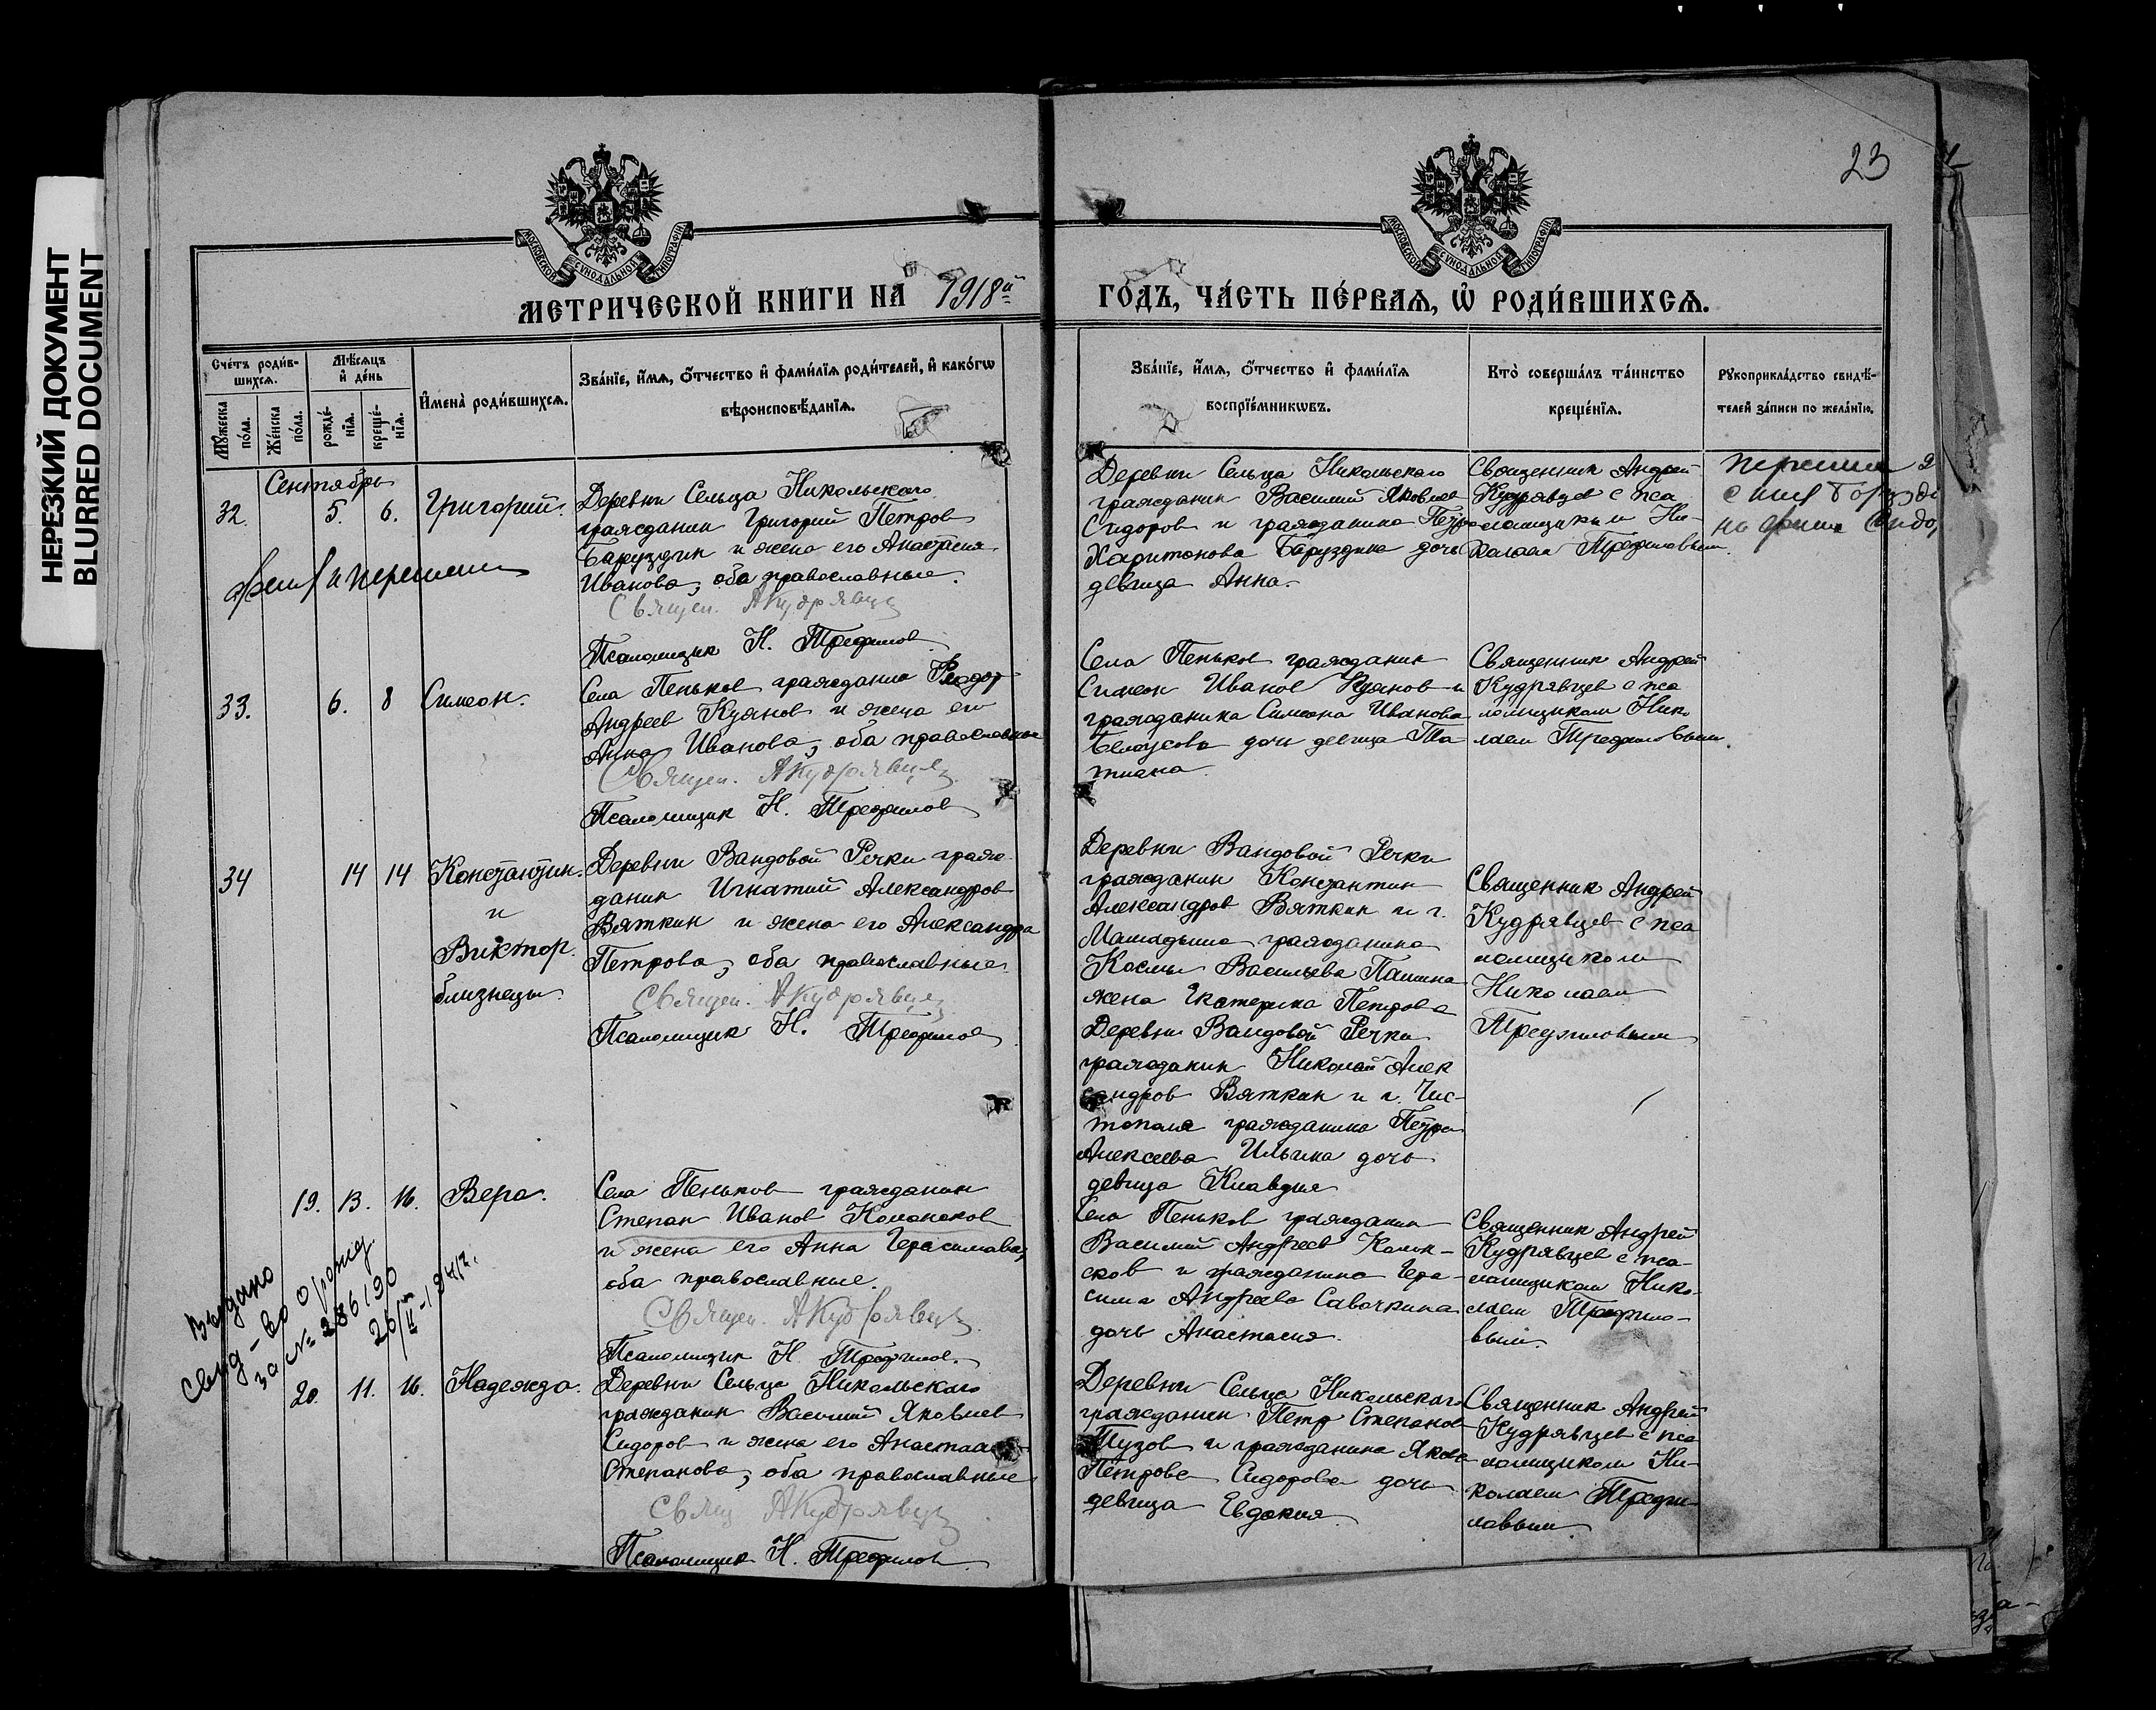 НЕРЕЗКИЙ ДОКУМЕНТ
BLURRED DOCUMENT
23
МОСКОВСКОЙ СУНОДАЛЬНОЙ ТИПОГРАФІИ
МОСКОВСКОЙ СУНОДАЛЬНОЙ ТИПОГРАФІИ
МЕТРИЧЕСКОЙ КНИГИ НА 1918й ГОДЪ, ЧАСТЬ ПЕРВАЯ, Ѡ РОДИВШИХСЯ.
Счетъ родив-
шихся.
Мѣсяцъ
и день
Мужеска
пола.
Женска
пола.
рожде-
нія.
креще-
нія.
Имена родившихся.
Званіе, имя, отчество и фамилія родителей, и какогѡ
вѣроисповѣданія.
Званіе, имя, отчество и фамилія
воспріемникѡвъ.
Кто совершалъ таинство
крещенія.
Рукоприкладство свидѣ-
телей записи по желанію.
Сентябрь
32. 5. 6. Григорий.
Деревни Сельца Никольского
гражданин Григорий Петров
Баруздин и жена его Анастасия
Иванова, оба православные.
Священ. АКудрявцев
Псаломщик Н. Трефилов
Деревни Сельца Никольского
гражданин Василий Яковлев
Сидоров и гражданина Петра
Харитонова Баруздина дочь
девица Анна.
Священник Андрей
Кудрявцев с пса
ломщиком Ни-
колаем Трефиловым.
33. 6. 8 Симеон.
Села Пеньков гражданин Феодор
Андреев Куянов и жена его
Анна Иванова, оба православные
Священ. АКудрявцев
Псаломщик Н. Трефилов
Села Пеньков гражданин
Симеон Иванов Куянов и
гражданина Симеона Иванова
Белоусова дочь девица Та-
тиана.
Священник Андрей
Кудрявцев с пса
ломщиком Нико
лаем Трефиловым.
34 14 14 Константин.
и
Виктор.
близнецы.
Деревни Вандовой Речки граж-
данин Игнатий Александров
Вяткин и жена его Александра
Петрова, оба православные.
Священ. АКудрявцев
Псаломщик Н. Трефилов
Деревни Вандовой Речки
гражданин Константин
Александров Вяткин и г.
Мамадыша гражданина
Космы Васильева Пашина
жена Екатерина Петрова
Деревни Вандовой Речки
гражданин Николай Алек
сандров Вяткин и г. Чис-
тополя гражданина Петра
Алексеева Ильина дочь
девица Клавдия
Священник Андрей
Кудрявцев с пса
ломщиком
Николаем
Трефиловым
19. 13. 16. Вера.
Села Пеньков гражданин
Степан Иванов
и жена его Анна Герасимова,
оба православные.
Священ. АКудрявцев
Псаломщик Н. Трефилов.
Села Пеньков гражданин
Василий Андреев
и гражданина Гера-
сима Андреева Савочкина
дочь Анастасия.
Священник Андрей
Кудрявцев с пса-
ломщиком Нико-
лаем Трефило-
вым.
Выдано
свид-во о рожд.
за № 286190
20. 11. 16. Надежда.
Деревни Сельца Никольского
гражданин Василий Яковлев
Сидоров и жена его Анастасия
Степанова, оба православные
Свящ АКудрявцев
Псаломщик Н. Трефилов.
Деревни Сельца Никольского
гражданин Петр Степанов
Тузов и гражданина Якова
Петрова Сидорова дочь
девица Евдокия
Священник Андрей
Кудрявцев с пса
ломщиком Ни-
колаем Трефи-
ловым.